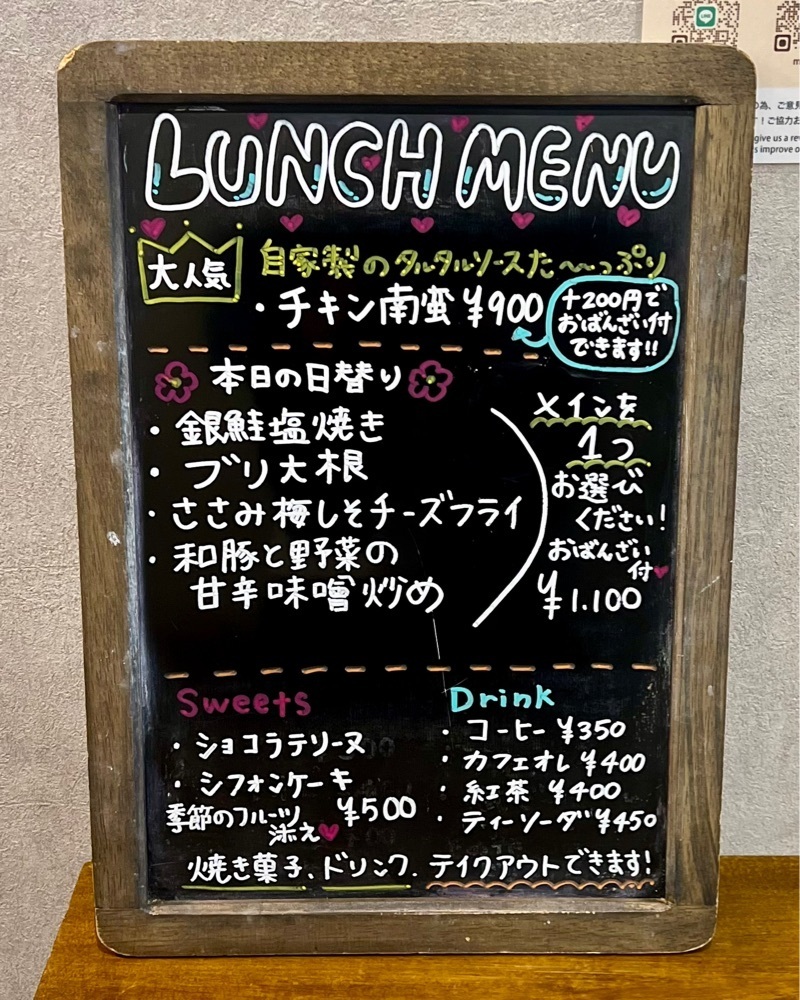 LUNCH MENU
大人気
自家製のタルタルソースた〜〜っぷり
・チキン南蛮 ¥900
+200円で
おばんざい付
できます!!
本日の日替り
・銀鮭塩焼き
・ブリ大根
・ささみ梅しそチーズフライ
・和豚と野菜の
甘辛味噌炒め
メインを
1つ
お選び
ください!
おばんざい
付
¥1.100
Sweets
・ショコラテリーヌ
・シフォンケーキ
季節のフルーツ
添え
¥500
Drink
・コーヒー ¥350
・カフェオレ ¥400
・紅茶 ¥400
・ティーソーダ ¥450
焼き菓子、ドリンク、テイクアウトできます!
LINE
の為、ご意見
!ご協力お
give us a rev
improve o